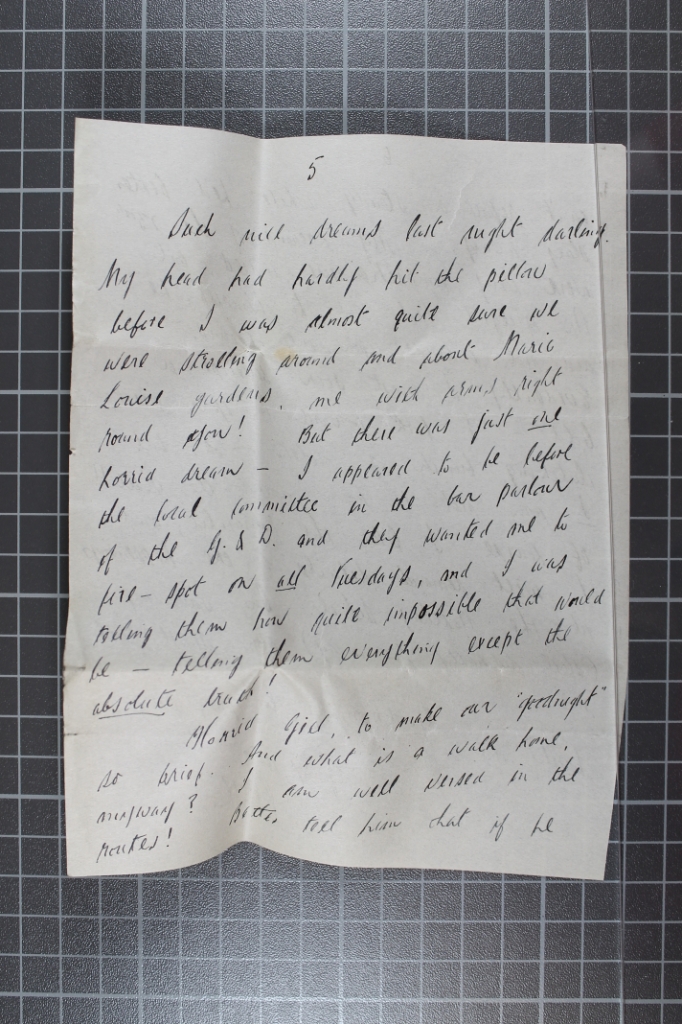 5
Such nice dreams last night darling.
My head had hardly hit the pillow
before I was almost quite sure we
were strolling around and about Marie
Louise gardens, me with arms right
round you! But there was just one
horrid dream – I appeared to be before
the local committee in the bar parlour
of the G. & D. and they wanted me to
fire-spot on all Tuesdays, and I was
telling them how quite impossible that would
be – telling them everything except the
absolute truth!
Horrid Gid, to make our "goodnight"
so brief. And what is a walk home,
anyway? I am well versed in the
routes! Better tell him that if he